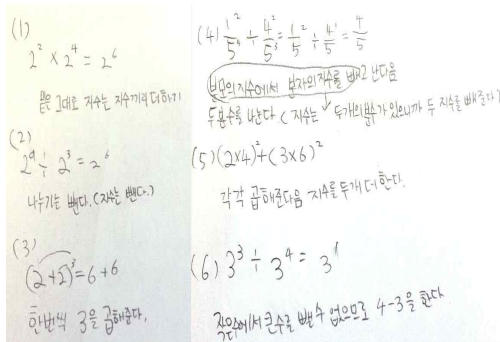 (1)
2² × 2⁴ = 2⁶
밑은 그대로 지수는 지수끼리 더하기
(2)
2⁹ ÷ 2³ = 2⁶
나누기는 뺀다. (지수는 뺀다.)
(3)
(2+2)³ = 6+6
한번씩 3을 곱해준다.
(4) 1²/5⁴ ÷ 4²/5³ = 1²/5 ÷ 4¹/5 = 4/5
분모의 지수에서 분자의 지수를 빼고 난다음
두분수를 나눈다 (지수는 두개의 분수가 있으니까 두 지수를 빼준다)
(5) (2×4)² + (3×6)²
각각 곱해준다음 지수를 두개 더 한다.
(6) 3³ ÷ 3⁴ = 3¹
작은수에서 큰수로 뺄 수 없으므로 4-3을 한다